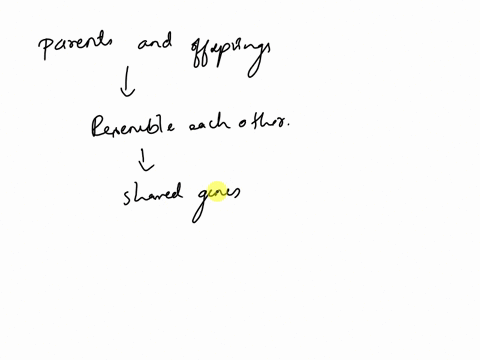 Parents and offsprings
↓
Resemble each other.
↓
shared genes